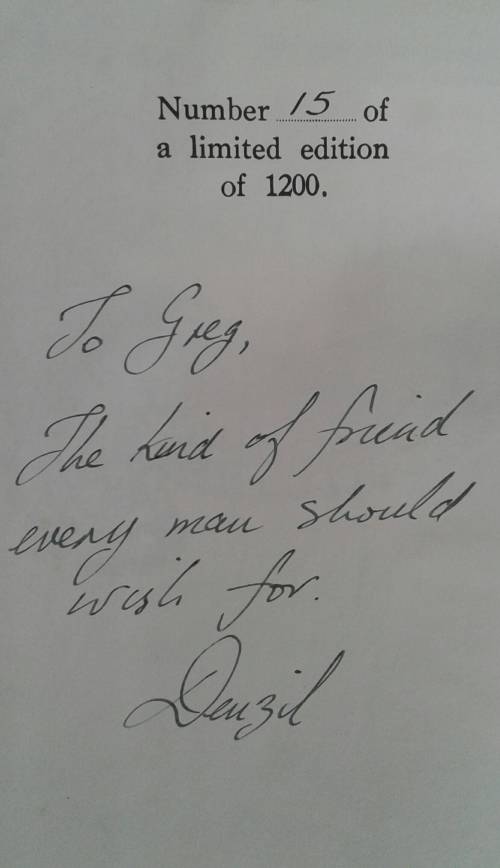 Number 15 of
a limited edition
of 1200.
To Greg,
The kind of friend
every man should
wish for.
Denzil